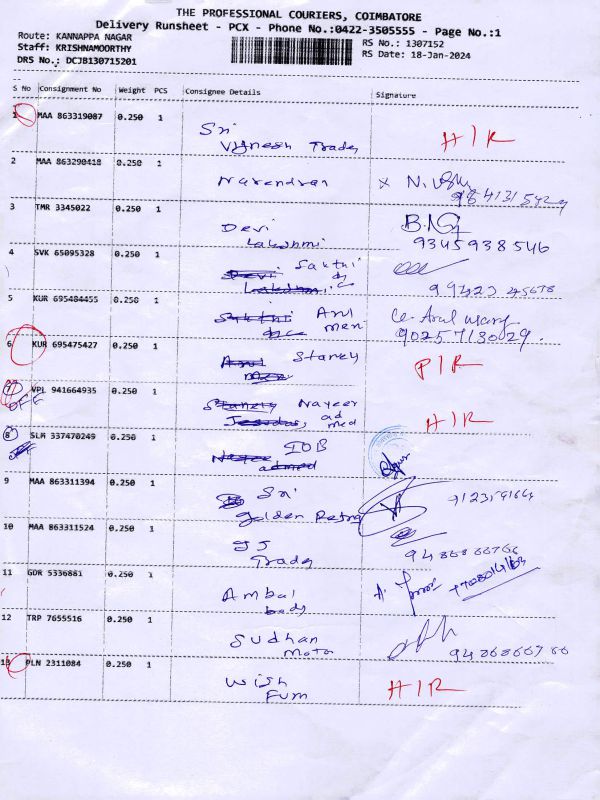 THE PROFESSIONAL COURIERS, COIMBATORE
Delivery Runsheet - PCX - Phone No.:0422-3505555 - Page No.:1
Route: KANNAPPA NAGAR
RS No.: 1307152
Staff: KRISHNAMOORTHY
RS Date: 18-Jan-2024
DRS No.: DCJB130715201
S No Consignment No Weight PCS Consignee Details Signature
1 MAA 863319087 0.250 1
Sri
Vignesh Trades H/R
2 MAA 863290418 0.250 1
Narendran x N.
3 TMR 3345022 0.250 1
Devi
Lakshmi 9345938546
4 SVK 65095328 0.250 1
Devi Sakthi
Lakshmi 99423 45678
5 KUR 695484455 0.250 1
Sakthi Arul
men 9025713029.
6 KUR 695475427 0.250 1
Arul Stanley
men P/R
7 VPL 941664935 0.250 1
OFF
Stanely Nayeer
ad
med H/R
8 SLM 337470249 0.250 1
IOB
admed
9 MAA 863311394 0.250 1
Sri
golden
10 MAA 863311524 0.250 1
JJ
Trades 9486866766
11 GDR 5336881 0.250 1
Ambal
body
12 TRP 7655516 0.250 1
Sudhan
Moto 9486866766
13 PLN 2311084 0.250 1
Wish
Furn H/R